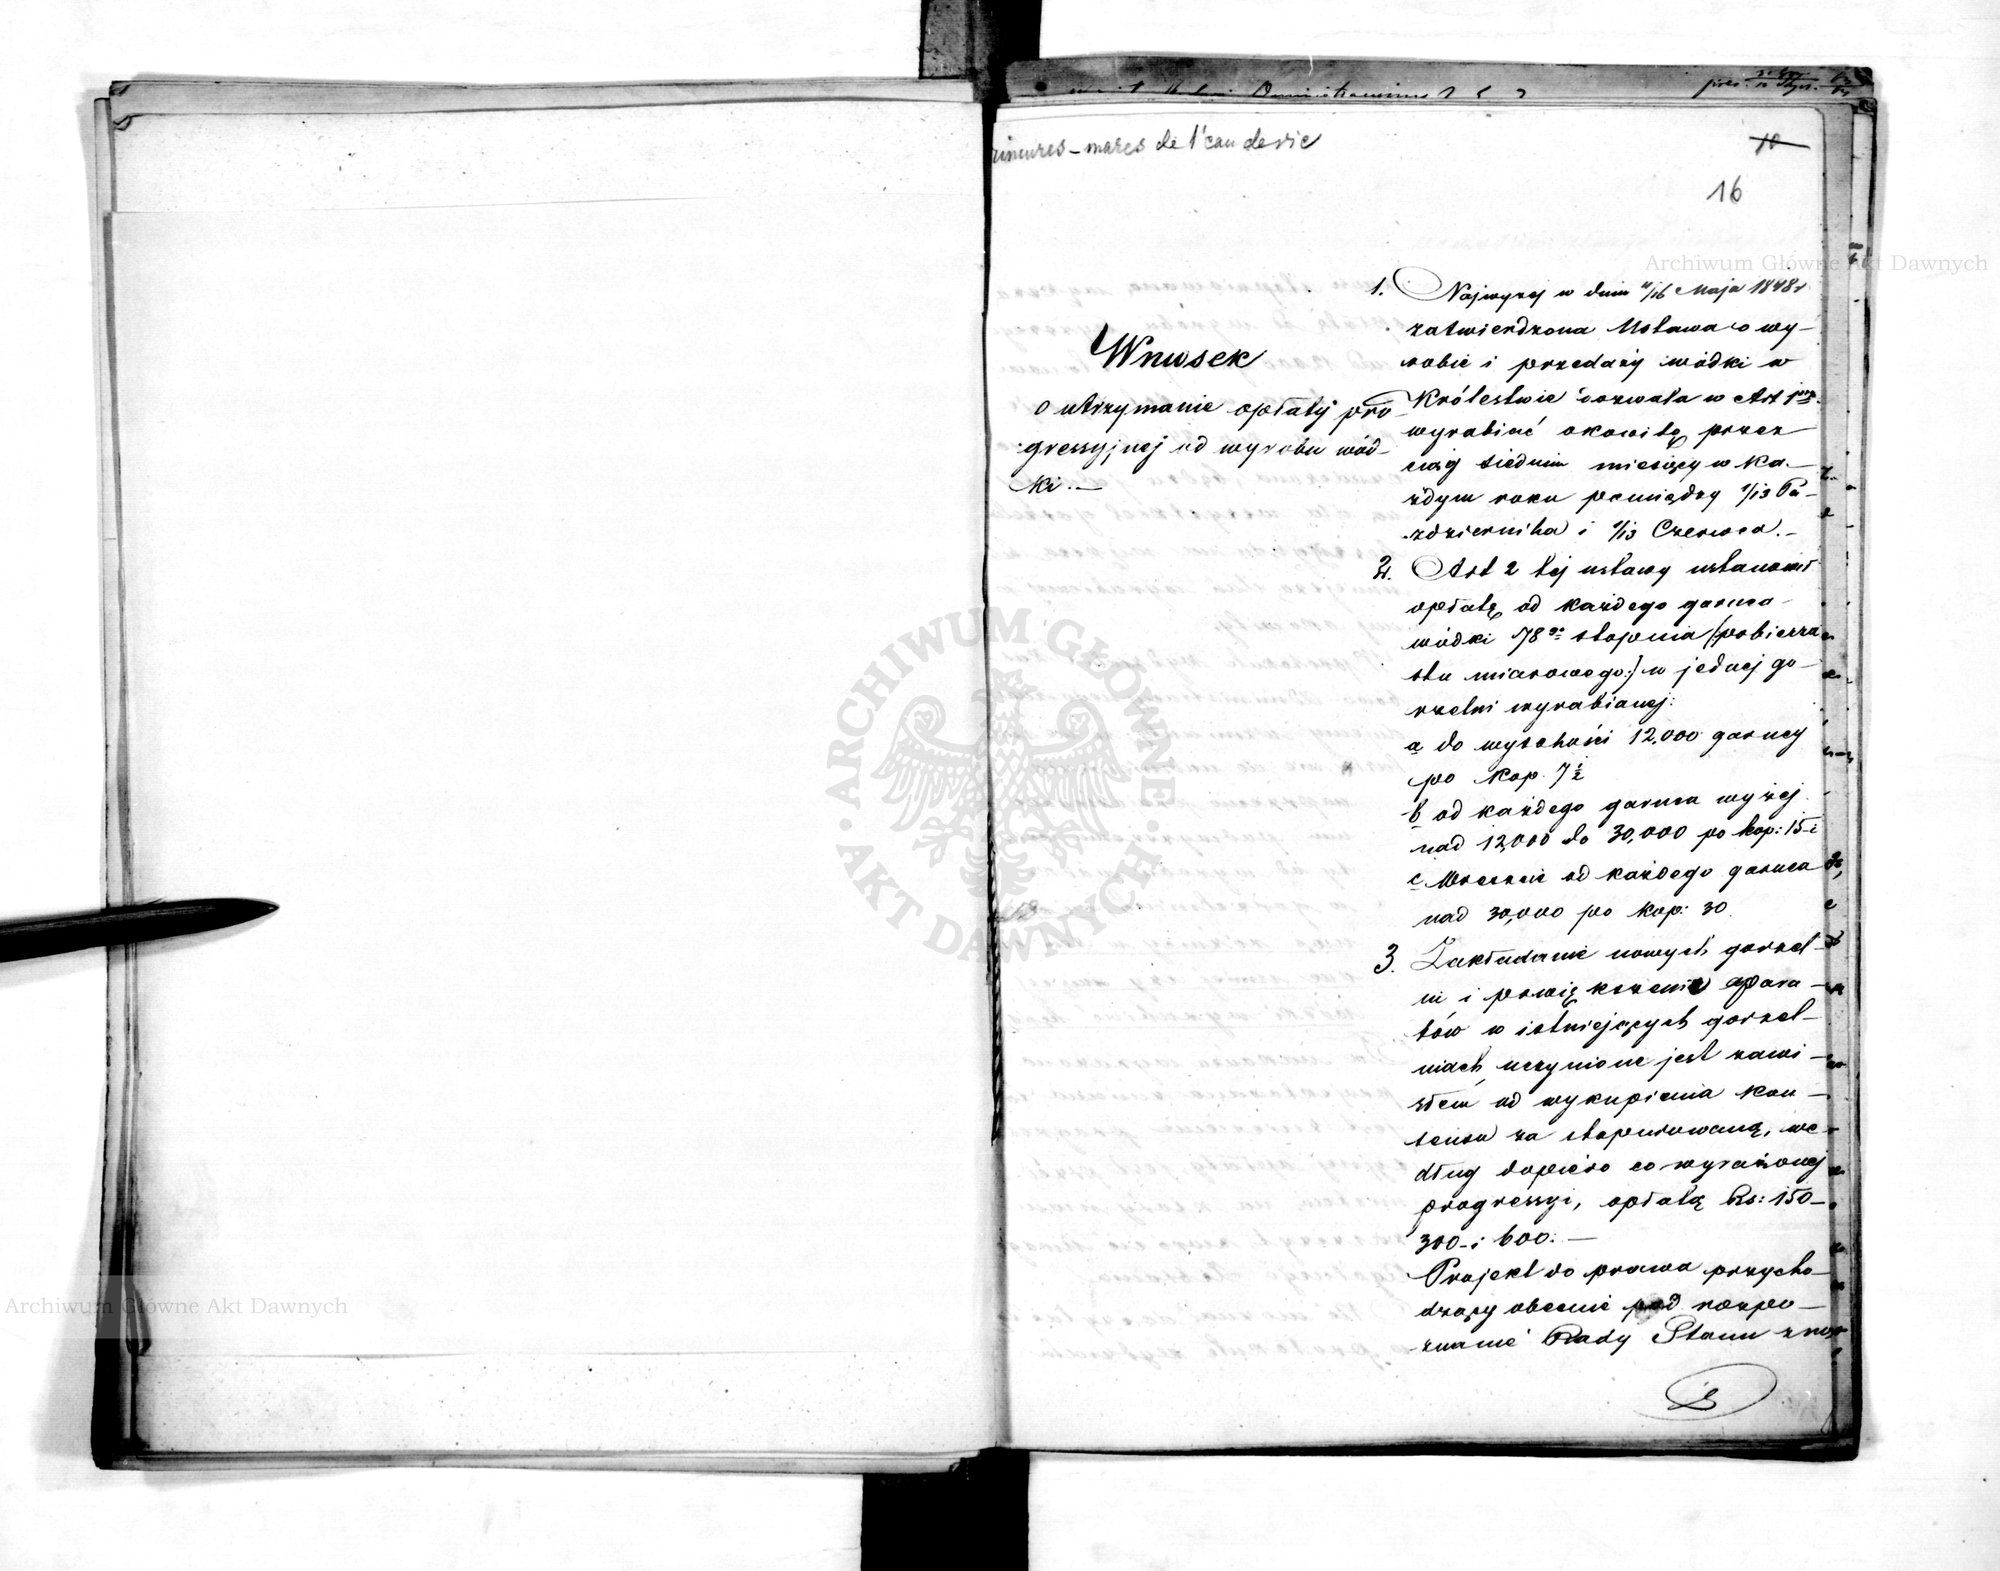 de l'eau de vie
10
16
Wniosek
o utrzymanie opłaty pro-
gressyjnej od wyrobu wód-
ki.—
1. Najwyżej w dniu 4/16 Maja 1848 r
zatwierdzona Ustawa o wy-
robie i przedaży wódki w
Królestwie dozwala w Art 1
wyrabiać okowitę przez
ciąg siedmiu miesięcy w ka-
żdym roku pomiędzy 1/13 Pa-
ździernika i 1/13 Czerwca.-
2. Art 2 tej ustawy ustanowił
opłatę od każdego garnca
wódki 78go stopnia
miarowego:/ w jednej go-
rzelni wyrabianej:
a do wysokości 12,000 garncy
po kop. 7 1/2
b od każdego garnca wyżej
nad 12,000 do 30,000 po kop: 15 i
c Wreszcie od każdego garnca
nad 30,000 po kop: 30.
3. Zakładanie nowych gorzel-
ni i powiększenie apara-
tów w istniejących gorzel-
niach, uczynione jest zawi-
słem od wykupienia kon-
sensu za stopniowaną, we-
dług dopiero co wyrażonej
progressyi, opłatą Rs: 150-
300-i 600.—
Projekt do prawa przycho-
dzący obecnie pod rozpo-
znanie Rady Stanu
Archiwum Główne Akt Dawnych
ARCHIWUM GŁÓWNE AKT DAWNYCH
Archiwum Główne Akt Dawnych